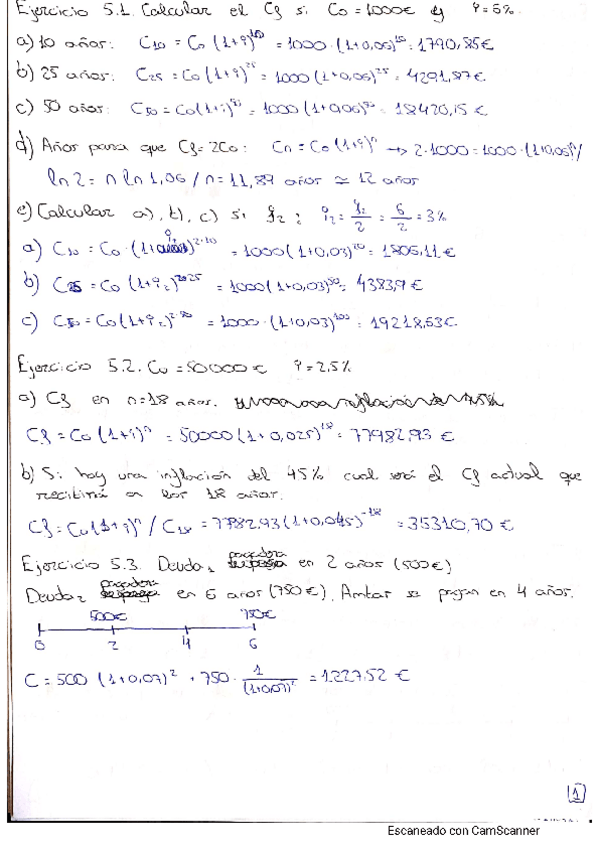 Ejercicio 5.1. Calcular el Cf si C0 = 1000€ y i = 6%
a) 10 años: C10 = C0 (1+i)^10 = 1000 · (1+0,06)^10 = 1790,85€
b) 25 años: C25 = C0 (1+i)^25 = 1000 (1+0,06)^25 = 4291,87€
c) 50 años: C50 = C0(1+i)^50 = 1000 (1+0,06)^50 = 18420,15 €
d) Años para que Cf = 2C0: Cn = C0 (1+i)^n → 2·1000 = 1000 · (1+0,06)^n /
ln 2 = n ln 1,06 / n = 11,89 años ≃ 12 años
e) Calcular a), b), c) si i2 = i2/2 = 6/2 = 3%
a) C10 = C0 · (1+i2)^2·10 = 1000 (1+0,03)^20 = 1806,11€
b) C25 = C0 (1+i2)^2·25 = 1000 (1+0,03)^50 = 4383,9€
c) C50 = C0 (1+i2)^2·50 = 1000 · (1+0,03)^100 = 19218,63€
Ejercicio 5.2. C0 = 50000€ i = 2,5%
a) Cf en n=18 años.
Cf = C0 (1+i)^n = 50000 (1+0,025)^18 = 77982,93 €
b) Si hay una inflación del 4'5% cual será el Cf actual que
recibiría en los 18 años.
Cf = C0 (1+i)^n / C18 = 77982,93 (1+0,045)^-18 = 35310,70 €
Ejercicio 5.3. Deuda1 pagadera en 2 años (500€)
Deuda2 pagadera en 6 años (750€). Ambas se pagan en 4 años.
500€ 750€
0 2 4 6
C = 500 (1+0,07)^2 + 750 · 1/(1+0,07)^2 = 1227,52 €
1
Escaneado con CamScanner